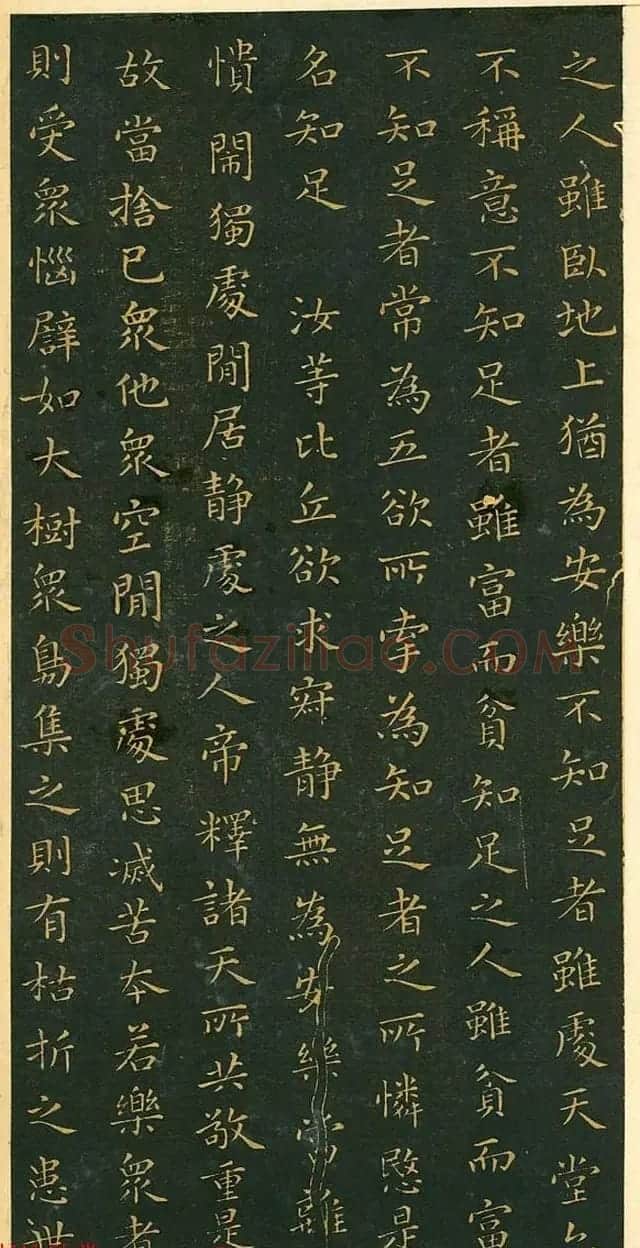 之人雖臥地上猶為安樂不知足者雖處天堂亦
不稱意不知足者雖富而貧知足之人雖貧而富
不知足者常為五欲所牽為知足者之所憐愍是
名知足 汝等比丘欲求寂靜無為安樂當離
憒閙獨處閒居靜處之人帝釋諸天所共敬重是
故當捨己眾他眾空閒獨處思滅苦本若樂眾者
則受眾惱譬如大樹眾鳥集之則有枯折之患世
Shufaziliao.COM